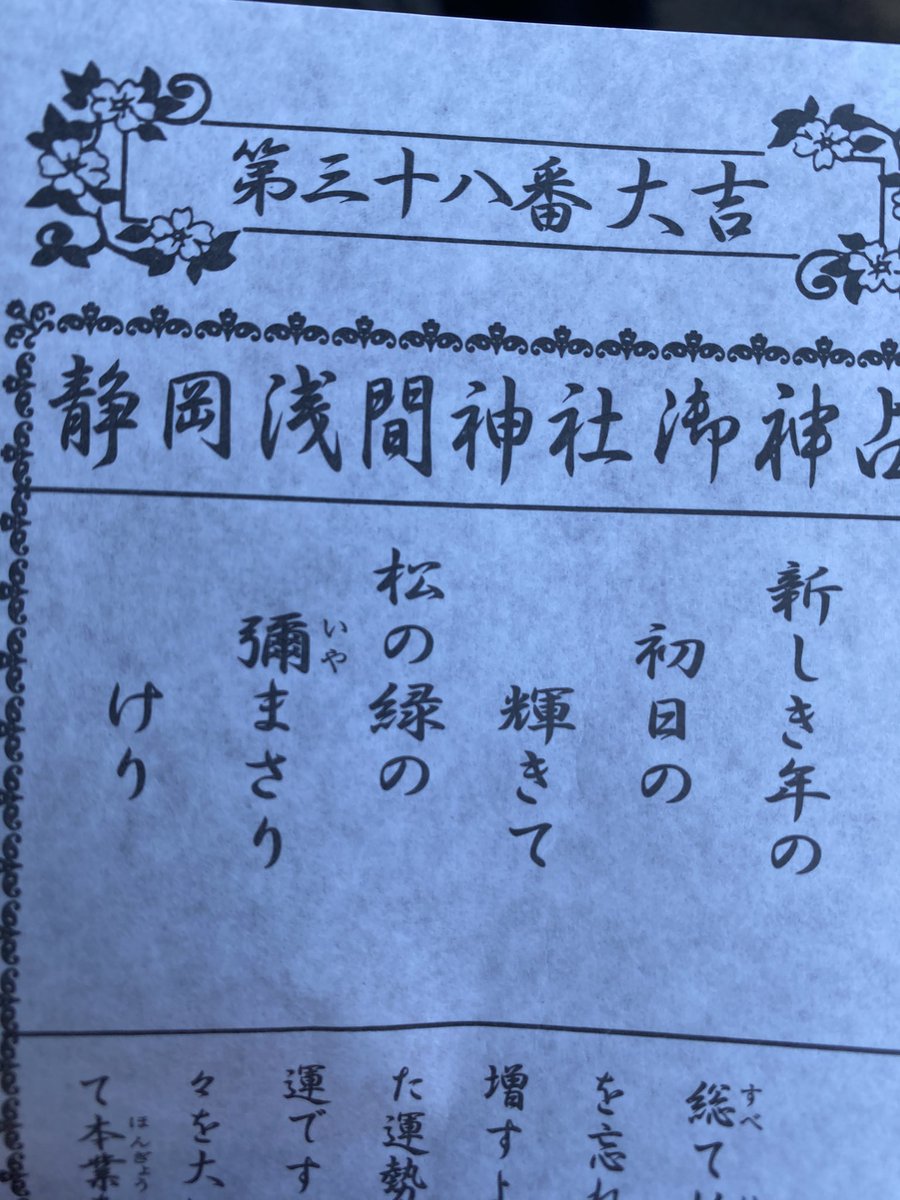 第三十八番大吉
静岡浅間神社御神占
新しき年の
初日の
輝きて
松の緑の
彌まさり
いや
けり
総て
すべ
を忘れ
増すよ
た運勢
運です
々を大
て本業
ほんぎょう